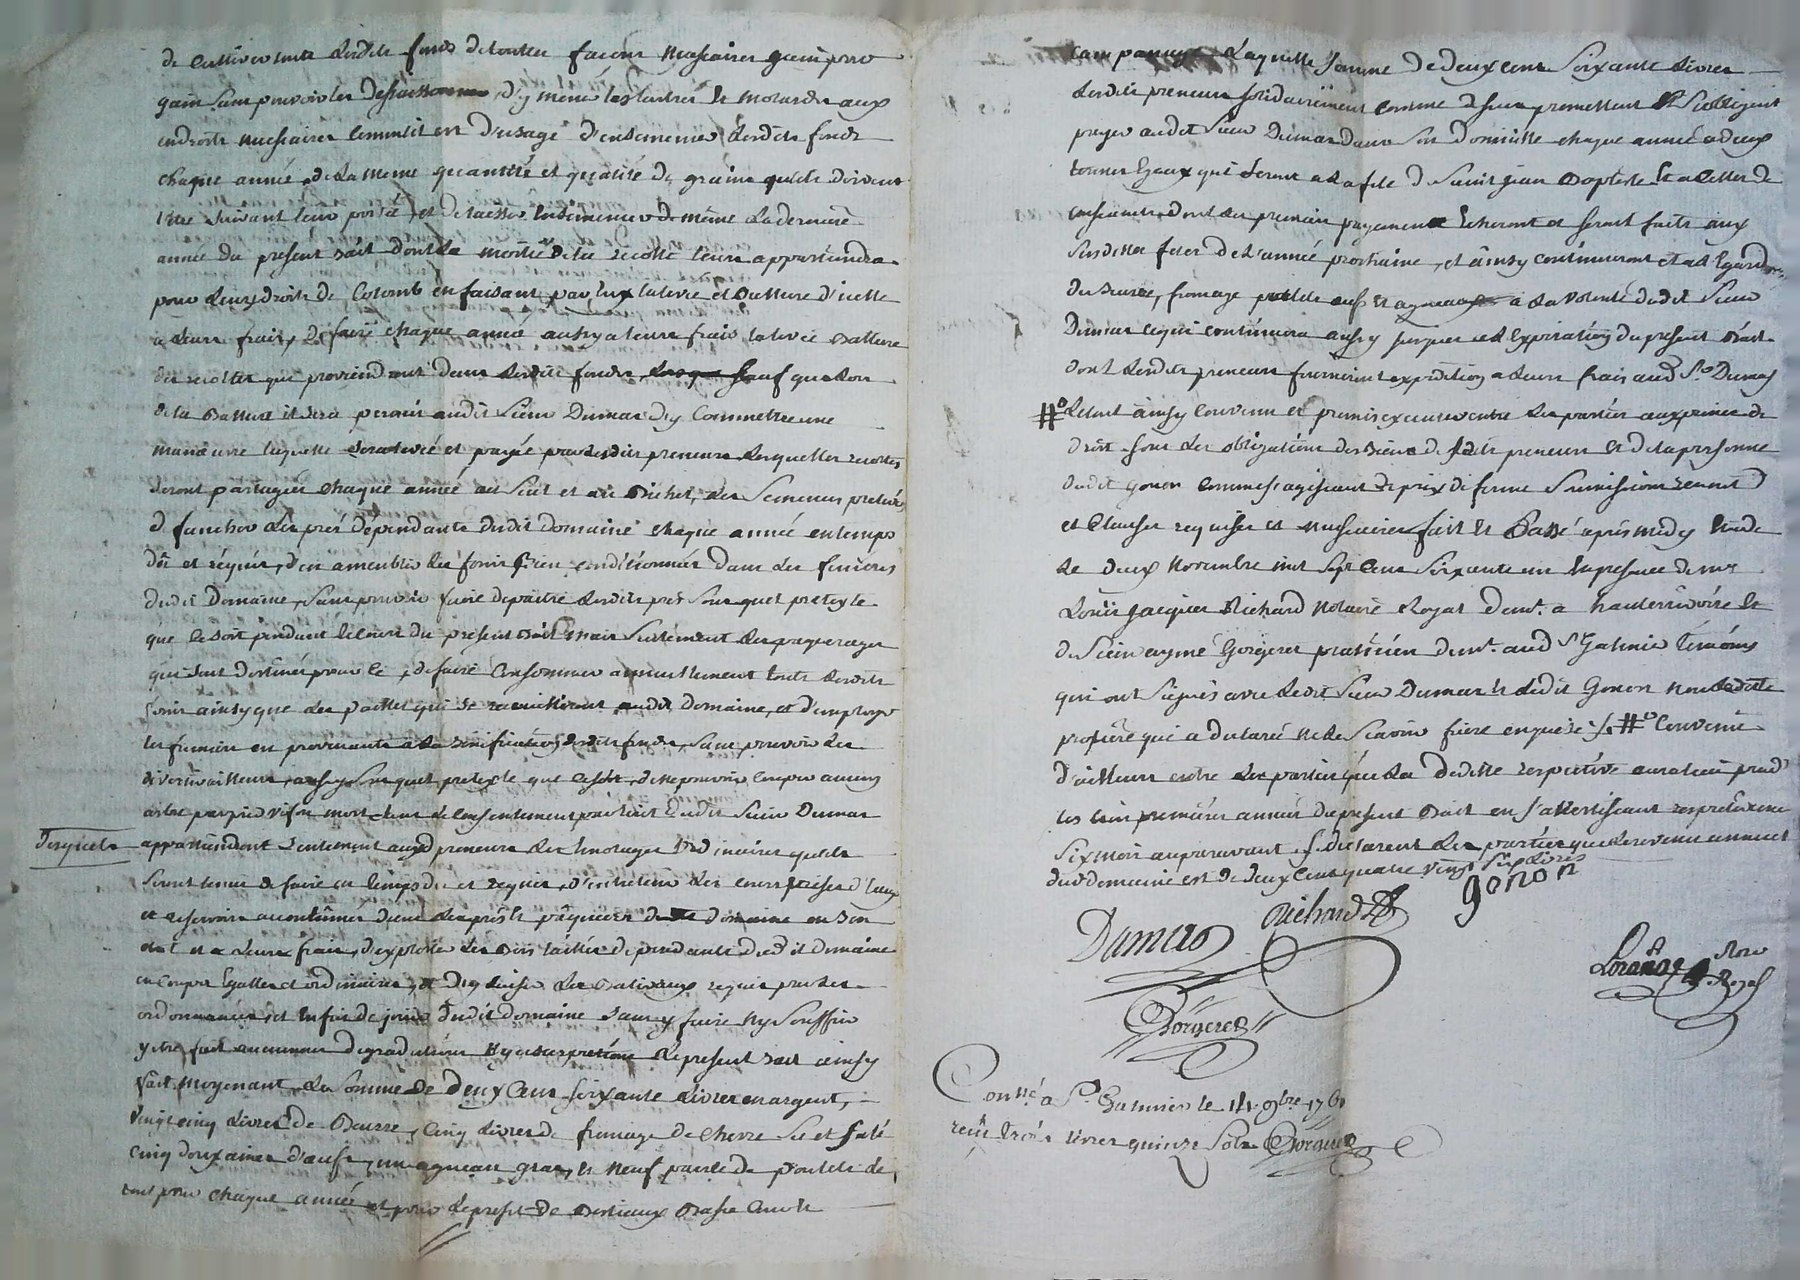 de cultiver tous lesdits fonds de toutes façons nécessaires
gain sans pouvoir les dessaisonner, d'y mener les et molardes aux
endroits nécessaires comme il est d'usage d'ensemencer lesdits fonds
chaque année de la meme quantité et qualité de grains qu'ils doivent
être suivant leur porté, et de laisser ensemencer de même la derniere
année du présent bail dont la moitié de la recolte leurs appartiendra
pour leurs droits de Colomb en faisant par eux la levée et batture d'icelle
a leurs frais, de faire chaque année aussy a leurs frais la levée batture
des recoltes qui proviendront dans lesdits fonds sauf que lors
de la batture il sera permis audit Sieur Dumas d'y commettre une
manœuvre laquelle sera et payée par lesdits preneurs lesquelles recoltes
seront partagées chaque année au sieul et au bichet, les semences prelevées
de faucher les prés dépendants dudit domaine chaque année en temps
dû et réquis, d'en ameubler les foins bien conditionnés dans les fenieres
dudit Domaine, sans pouvoir faire depaitre lesdits prés sous quel pretexte
que ce soit pendant le cours du present bail mais seulement les paquerages
qui sont destinés pour ce, de faire consommer annuellement tous lesdits
foins ainsy que les pailles qui se recuilliront audit domaine, et d'employer
les fumiers en provenants a la bonification desdits fonds, sans pouvoir les
divertir ailleurs, aussy sous quel pretexte que ce soit, de ne pouvoir couper aucuns
arbres par pied vif ou mort sans le consentement par écrit dudit Sieur Dumas
desquels
appartiendront seulement auxd preneurs les émondages ordinaires qu'ils
seront tenus de faire en temps dû et requis, d'entretenir les cours prises d'eaux
et reservoirs accoutumés dans les prés et pâquiers dudit domaine en bon
état et a leurs frais, d'exploiter les bois taillis dependants dudit domaine
en coupes egalles et ordinaires, et d'y laisser les baliveaux requis par les
ordonnances, et enfin de jouir dudit domaine sans y faire ny souffrir
y etre fait aucunes degradations ny le present bail ainsy
fait moyenant la somme de deux cens soixante livres en argent,
vingt cinq livres de beurre, cinq livres de fromage de chevre sec et salé
cinq douzaines d'œufs, un agneau gras, et neuf paires de poulets le
tout pour chaque année et pour le present de
Laquelle somme de deux cens soixante livres
lesdits preneurs solidairement comme dessus promettent et s'obligent
payer audit Sieur Dumas dans son domicille chaque année a deux
termes egaux qui seront a la fete de Saint jean Baptiste et a celles de
dont les premiers payements echeront et seront faits aux
susdittes fetes de l'année prochaine, et ainsy continueront et a l'egard
du beurre, fromage poulets œufs et agneaux a la volonté dudit Sieur
Dumas ce qui continuera aussy jusques a l'expiration du present bail
dont lesdits preneurs fourniront expédition a leurs frais aud Sr Dumas
# Le tout ainsy convenu et promis executer entre les parties aux peines de
droit sous les obligations des biens desdits preneurs et de la personne
dudit gonon comme s'agissant de prix de ferme soumissions renonc
et clauses requises et necessaires fait et passé après midy
le deux novembre mil sept cens soixante un en presence de mre
Louis jacques Richard Notaire Royal demt. a hauterivoire et
de Sieur aymé Gorgeret praticien demt. aud St Galmier temoins
qui ont signés avec ledit Sieur Dumas et ledit Gonon non ladite
qui a declaré ne le scavoir faire enquise # Convenu
d'ailleurs entre les parties que la deditte respective aura lieu pend
les trois premieres années du present bail en s'avertissant respectivement
six mois auparavant declarent les parties que le revenu annuel
dud domaine est de deux cens quatre vingt six livres
gonon
Dumas
Richard
Gorgeret
Royal
Conllé a St Galmier le 14. 9bre 1761
reçu trois livres quinze sols Gorgeret